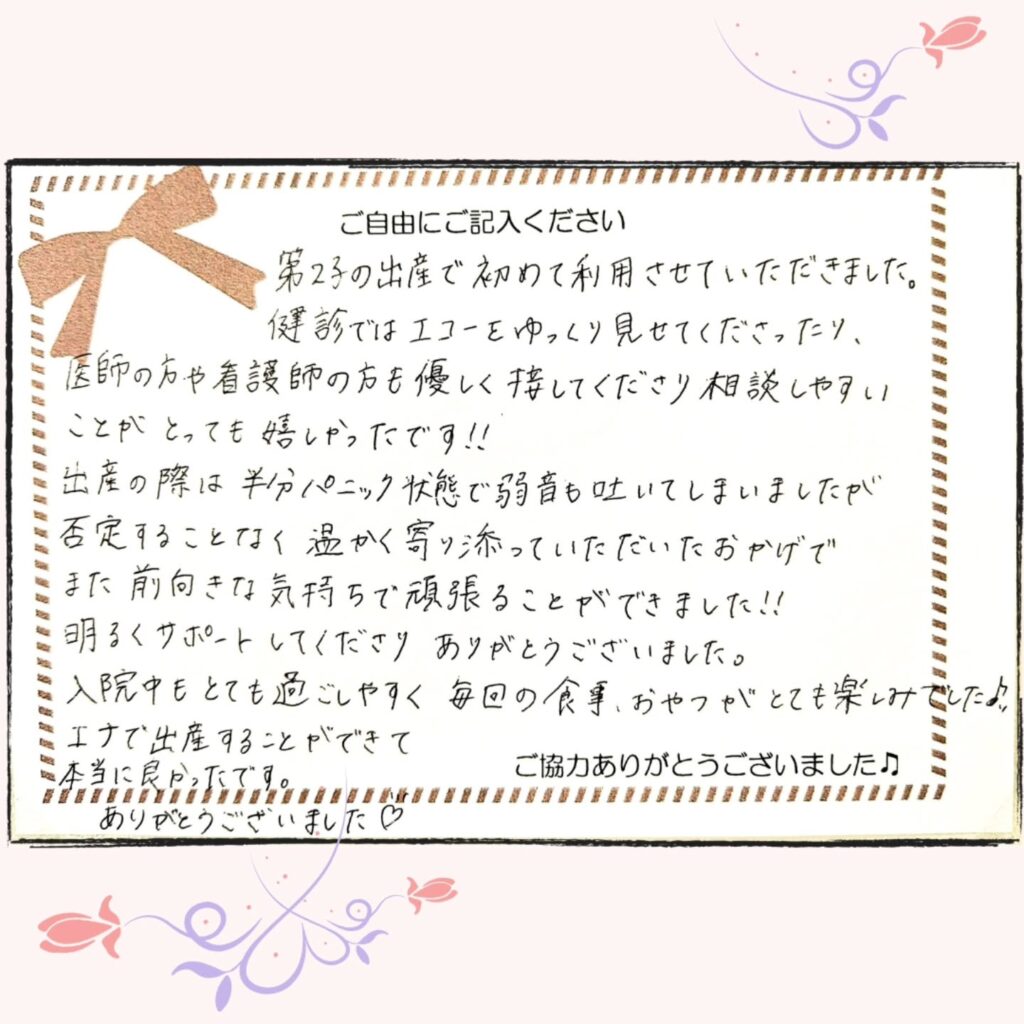 ご自由にご記入ください
第2子の出産で初めて利用させていただきました。
健診ではエコーをゆっくり見せてくださったり、
医師の方や看護師の方も優しく接してくださり相談しやすい
ことがとっても嬉しかったです!!
出産の際は半分パニック状態で弱音も吐いてしまいましたが
否定することなく温かく寄り添っていただいたおかげで
また前向きな気持ちで頑張ることができました!!
明るくサポートしてくださりありがとうございました。
入院中もとても過ごしやすく毎回の食事、おやつがとても楽しみでした♪
エナで出産することができて
本当に良かったです。
ご協力ありがとうございました♫
ありがとうございました♡